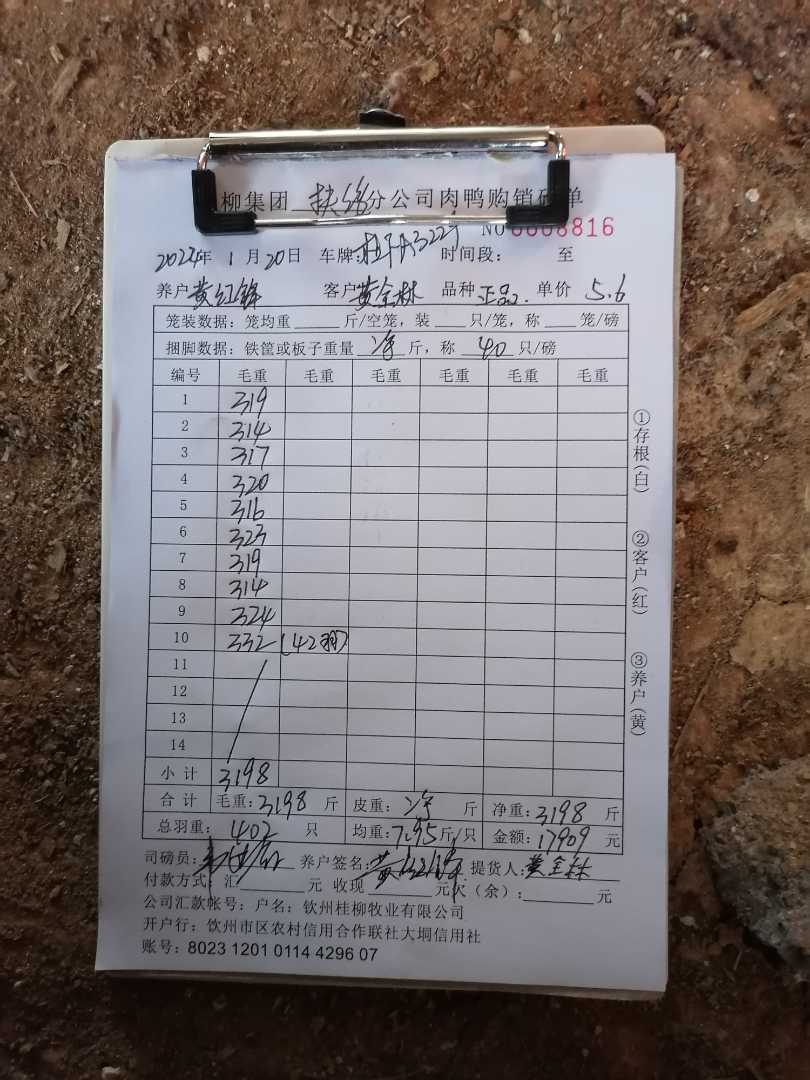 柳集团 扶绥分公司肉鸭购销 单
NO 0008816
2024年 1月 20日 车牌: 时间段: 至
养户 黄红锋 客户 黄金林 品种 正品 单价 5.6
笼装数据: 笼均重 斤/空笼, 装 只/笼, 称 笼/磅
捆脚数据: 铁筐或板子重量 净 斤, 称 40 只/磅
编号 毛重 毛重 毛重 毛重 毛重 毛重
1 319
2 314
3 317
4 320
5 316
6 323
7 319
8 314
9 324
10 332 (42羽)
11
12
13
14
小计 3198
合计 毛重: 3198 斤 皮重: 净 斤 净重: 3198 斤
总羽重: 402 只 均重: 7.95斤/只 金额: 17909 元
司磅员: 养户签名: 黄红锋 提货人: 黄金林
付款方式: 汇 元 收现 元 欠(余): 元
公司汇款帐号: 户名: 钦州桂柳牧业有限公司
开户行: 钦州市区农村信用合作联社大垌信用社
账号: 8023 1201 0114 4296 07
①存根(白)
②客户(红)
③养户(黄)